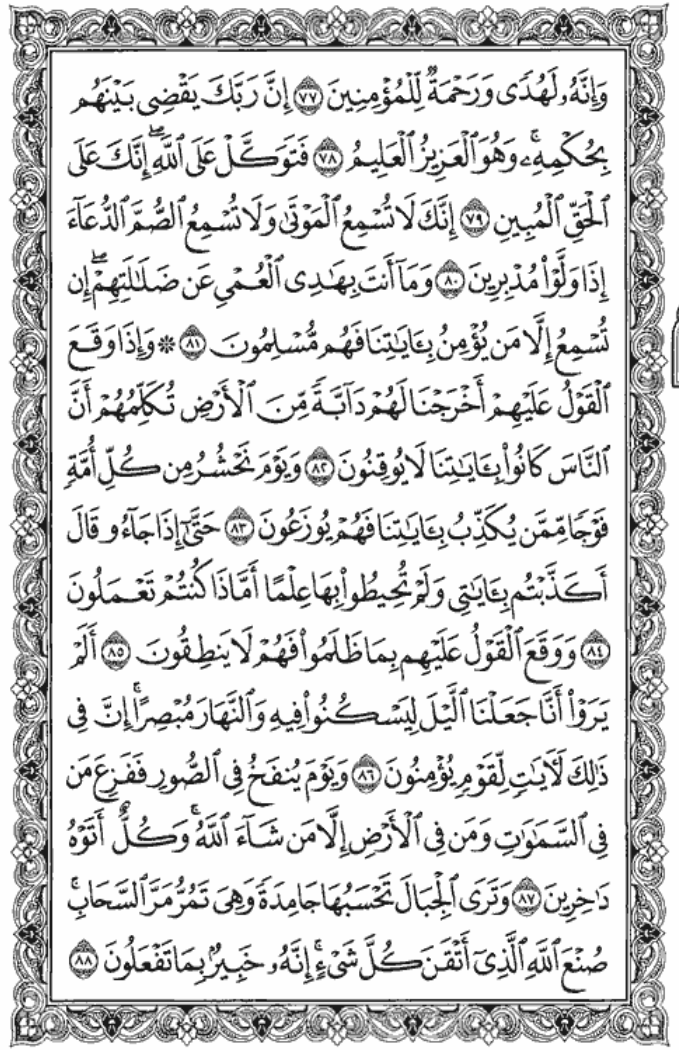 وَإِنَّهُۥ لَهُدٗى وَرَحۡمَةٞ لِّلۡمُؤۡمِنِينَ ٧٧ إِنَّ رَبَّكَ يَقۡضِي بَيۡنَهُم
بِحُكۡمِهِۦۚ وَهُوَ ٱلۡعَزِيزُ ٱلۡعَلِيمُ ٧٨ فَتَوَكَّلۡ عَلَى ٱللَّهِۖ إِنَّكَ عَلَى
ٱلۡحَقِّ ٱلۡمُبِينِ ٧٩ إِنَّكَ لَا تُسۡمِعُ ٱلۡمَوۡتَىٰ وَلَا تُسۡمِعُ ٱلصُّمَّ ٱلدُّعَآءَ
إِذَا وَلَّوۡاْ مُدۡبِرِينَ ٨٠ وَمَآ أَنتَ بِهَٰدِي ٱلۡعُمۡيِ عَن ضَلَٰلَتِهِمۡۖ إِن
تُسۡمِعُ إِلَّا مَن يُؤۡمِنُ بِـَٔايَٰتِنَا فَهُم مُّسۡلِمُونَ ٨١ ۞ وَإِذَا وَقَعَ
ٱلۡقَوۡلُ عَلَيۡهِمۡ أَخۡرَجۡنَا لَهُمۡ دَآبَّةٗ مِّنَ ٱلۡأَرۡضِ تُكَلِّمُهُمۡ أَنَّ
ٱلنَّاسَ كَانُواْ بِـَٔايَٰتِنَا لَا يُوقِنُونَ ٨٢ وَيَوۡمَ نَحۡشُرُ مِن كُلِّ أُمَّةٖ
فَوۡجٗا مِّمَّن يُكَذِّبُ بِـَٔايَٰتِنَا فَهُمۡ يُوزَعُونَ ٨٣ حَتَّىٰٓ إِذَا جَآءُو قَالَ
أَكَذَّبۡتُم بِـَٔايَٰتِي وَلَمۡ تُحِيطُواْ بِهَا عِلۡمًا أَمَّاذَا كُنتُمۡ تَعۡمَلُونَ
٨٤ وَوَقَعَ ٱلۡقَوۡلُ عَلَيۡهِم بِمَا ظَلَمُواْ فَهُمۡ لَا يَنطِقُونَ ٨٥ أَلَمۡ
يَرَوۡاْ أَنَّا جَعَلۡنَا ٱلَّيۡلَ لِيَسۡكُنُواْ فِيهِ وَٱلنَّهَارَ مُبۡصِرًاۚ إِنَّ فِي
ذَٰلِكَ لَأٓيَٰتٖ لِّقَوۡمٖ يُؤۡمِنُونَ ٨٦ وَيَوۡمَ يُنفَخُ فِي ٱلصُّورِ فَفَزِعَ مَن
فِي ٱلسَّمَٰوَٰتِ وَمَن فِي ٱلۡأَرۡضِ إِلَّا مَن شَآءَ ٱللَّهُۚ وَكُلٌّ أَتَوۡهُ
دَٰخِرِينَ ٨٧ وَتَرَى ٱلۡجِبَالَ تَحۡسَبُهَا جَامِدَةٗ وَهِيَ تَمُرُّ مَرَّ ٱلسَّحَابِۚ
صُنۡعَ ٱللَّهِ ٱلَّذِيٓ أَتۡقَنَ كُلَّ شَيۡءٍۚ إِنَّهُۥ خَبِيرُۢ بِمَا تَفۡعَلُونَ ٨٨